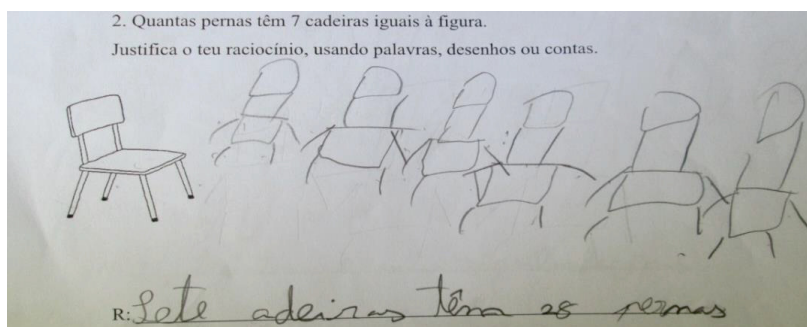 2. Quantas pernas têm 7 cadeiras iguais à figura.
Justifica o teu raciocínio, usando palavras, desenhos ou contas.
R: Sete adeiras têm 28 pernas